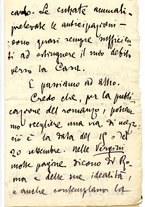 cardo. Le entrate annuali
prelevate le anticipazioni
sono quasi sempre insufficienti
ad estinguere il mio debito
verso la Casa.
E passiamo ad altro.
Credo che, per la pubbli-
cazione del romanzo, potremo
scegliere una via di mezzo
ed è la data del 15 o del
20 settembre. nelle Vergini
molte pagine dicono di Ro-
ma e delle mie idealità,
e anche contemplano la